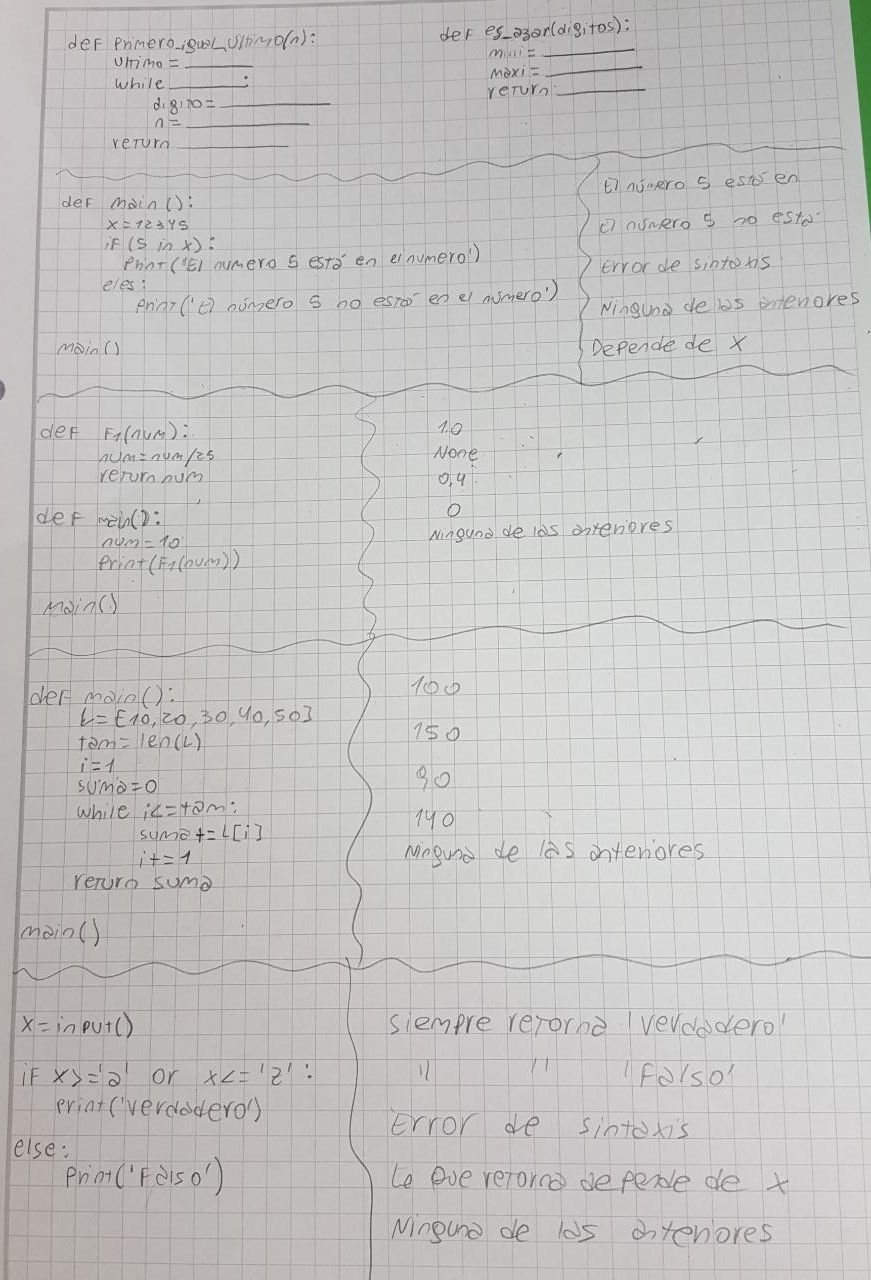 def primero_igual_ultimo(n):
ultimo = ________
while ________:
digito= ________
n= ________
return ________
def es_azar(digitos):
mini= ________
maxi= ________
return: ________
def main():
x=12345
if (5 in x):
Print('El numero 5 está en el numero')
eles:
print('El número 5 no está en el número')
main()
El número 5 está en
El número 5 no está
Error de sintaxis
Ninguna de las anteriores
Depende de x
def F1(num):
num=num/25
return num
def main():
num=10
Print(F1(num))
main()
1.0
None
0,4
0
Ninguna de las anteriores
def main():
L=[10,20,30,40,50]
tam=len(L)
i=1
suma=0
while i<=tam:
suma+=L[i]
i+=1
return suma
main()
100
150
90
140
Ninguna de las anteriores
x=input()
if x>='a' or x<='z':
print('verdadero')
else:
Print('Falso')
siempre retorna 'verdadero'
" " 'Falso'
Error de sintaxis
Lo que retorna depende de x
Ninguna de las anteriores